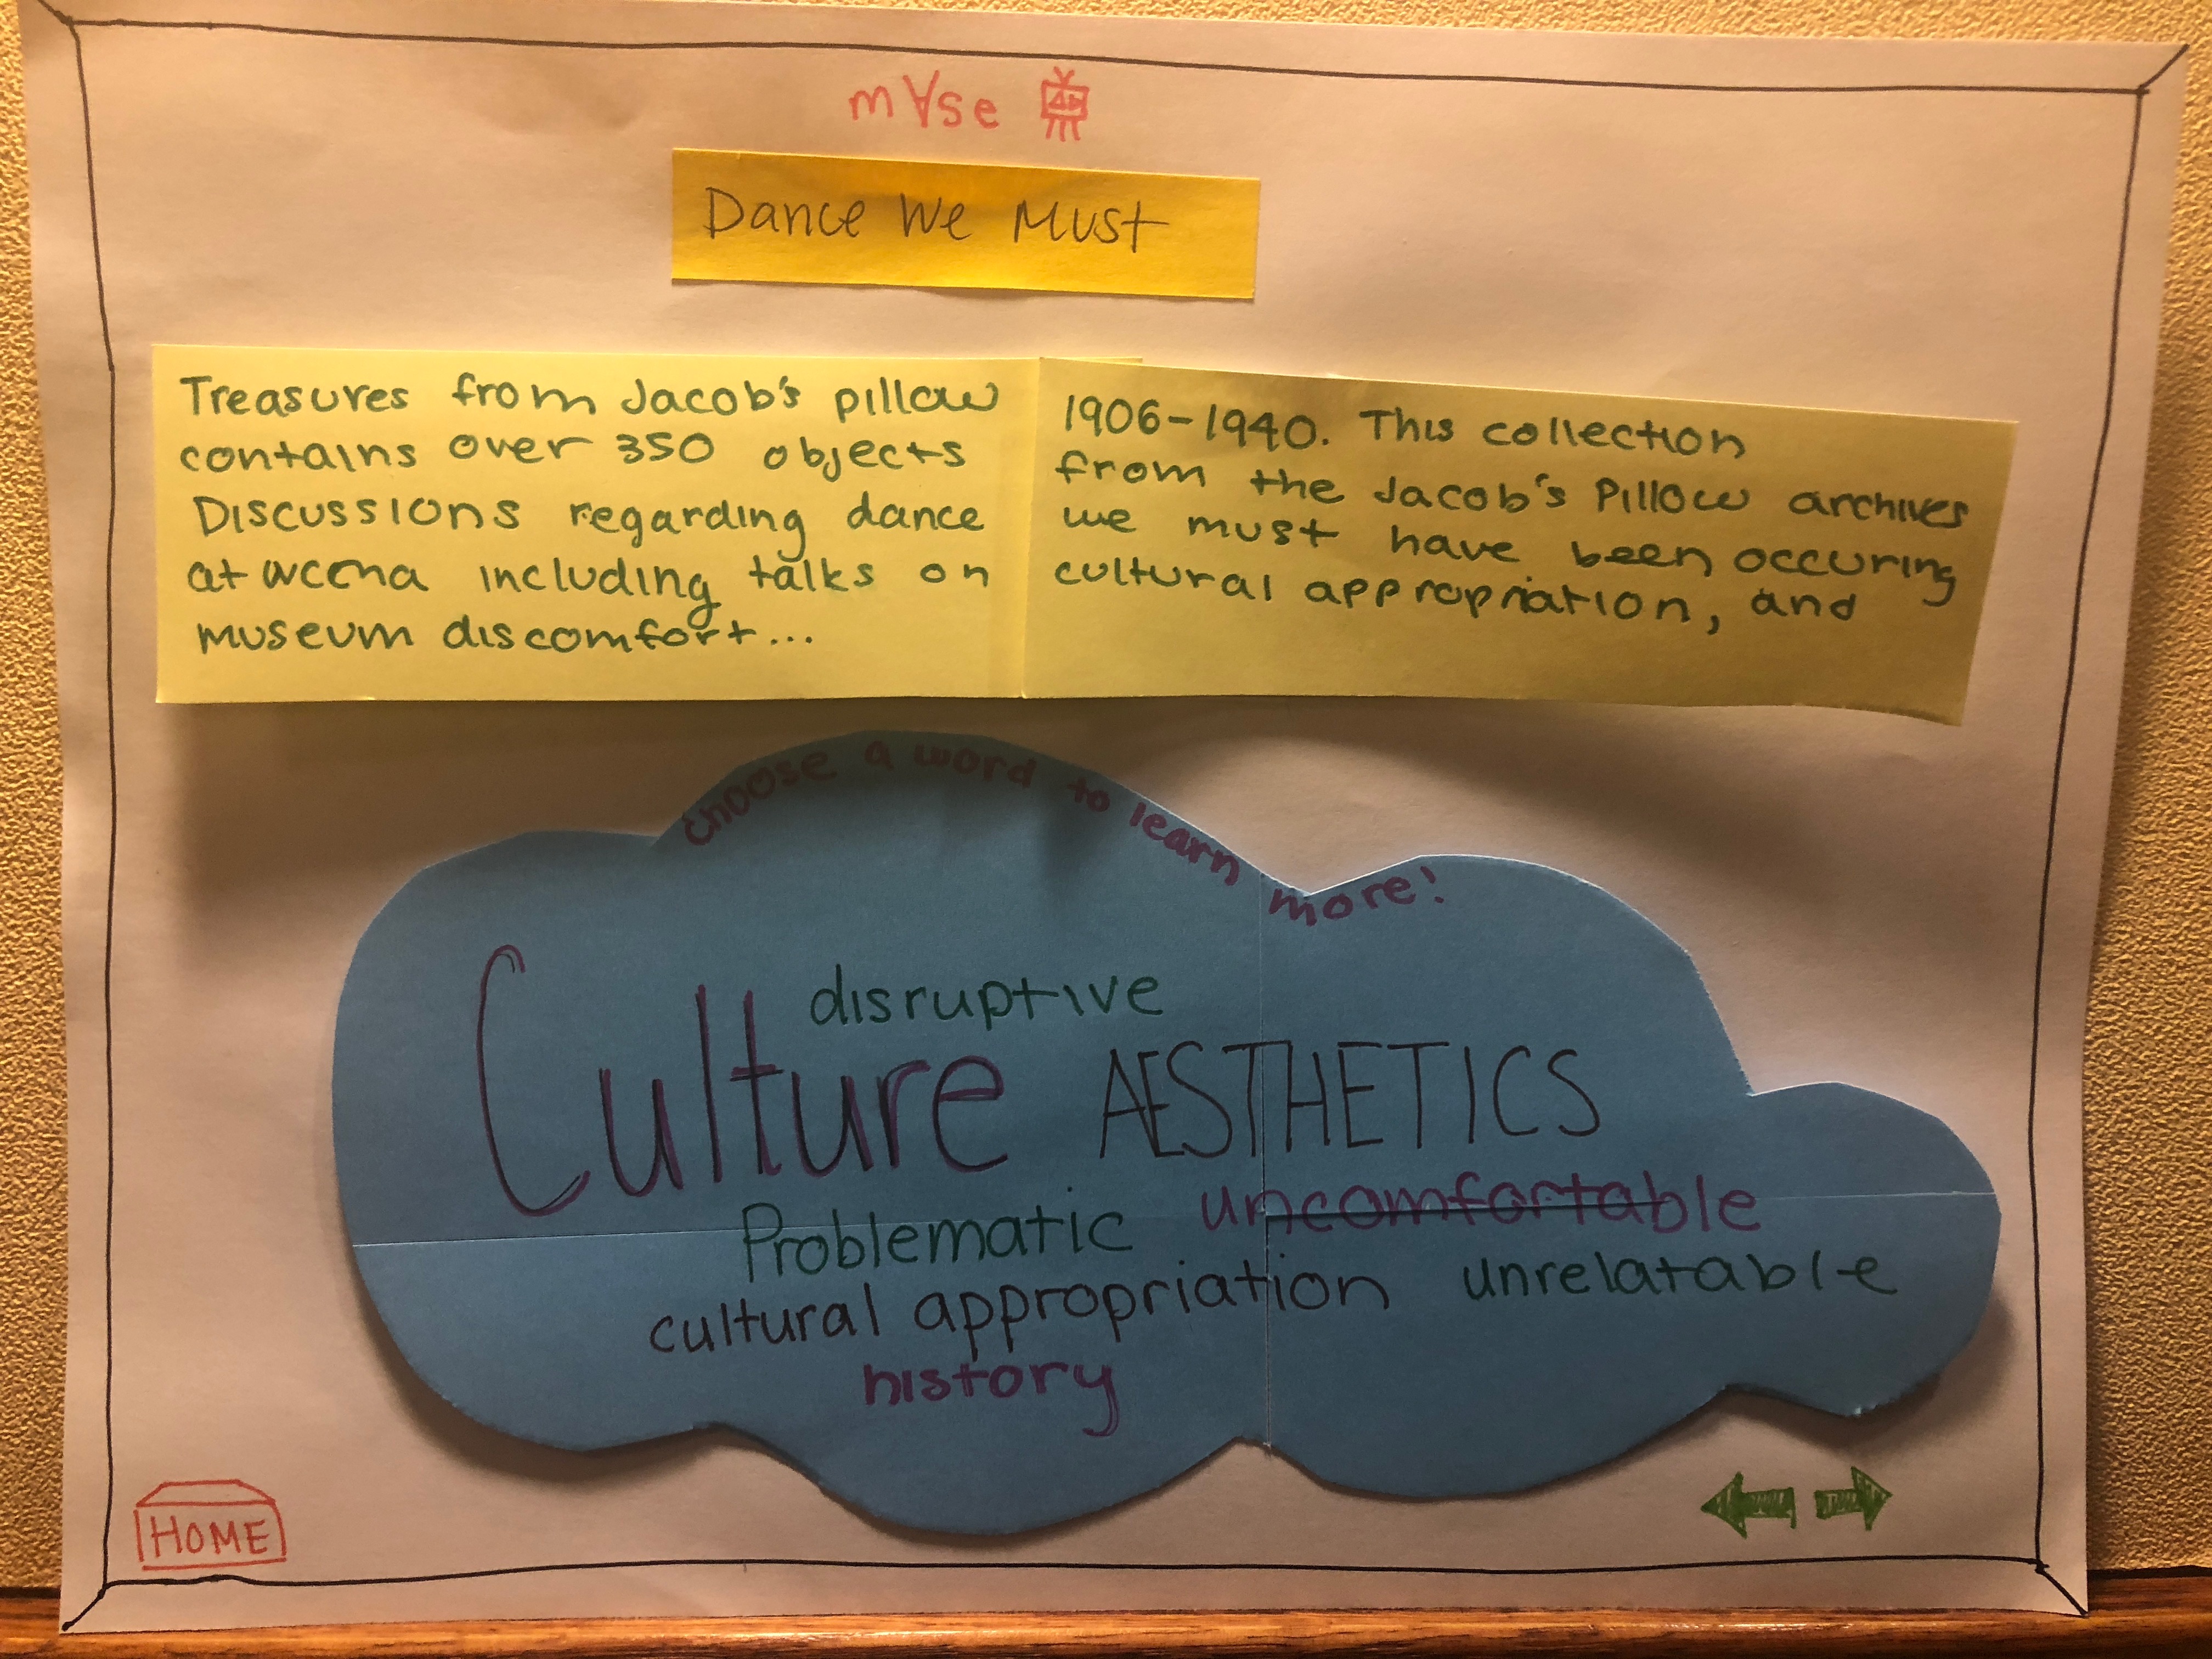 m∀se
Dance We Must
Treasures from Jacob's pillow
contains over 350 objects
Discussions regarding dance
at wcma including talks on
museum discomfort...
1906-1940. This collection
from the Jacob's Pillow archives
we must have been occuring
cultural appropriation, and
choose a word to learn more!
disruptive
Culture AESTHETICS
Problematic uncomfortable
cultural appropriation unrelatable
history
HOME